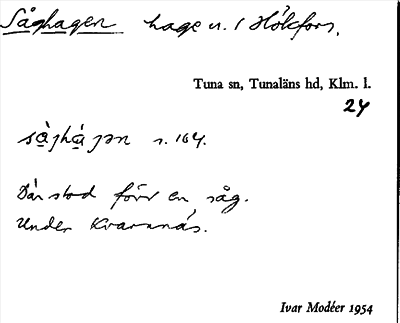 Såghagen hage n. / Hökfors.
Tuna sn, Tunaläns hd, Klm. l.
24
s. 164.
Där stod förr en såg.
Under Kvarnnäs.
Ivar Modéer 1954